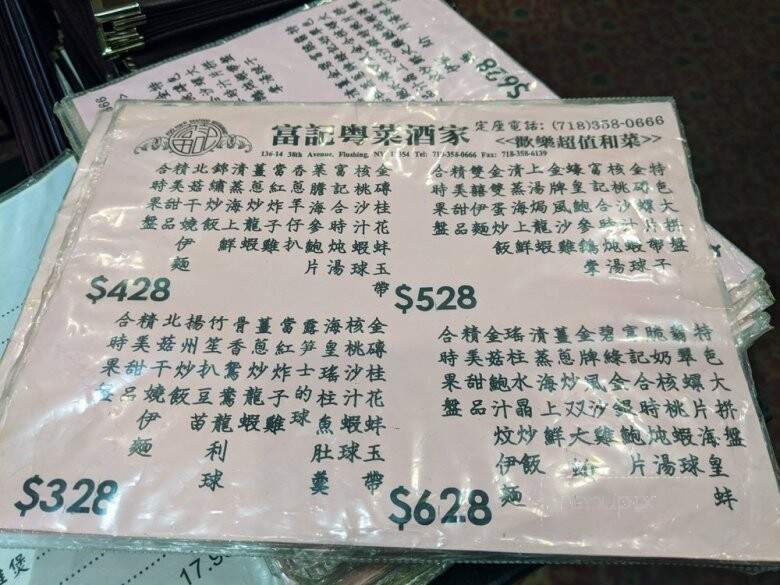 富記粵菜酒家
定座電話: (718)358-0666
136-14 38th Avenue, Flushing, NY 11354 Tel: 718-358-0666 Fax: 718-358-6139
<<歡樂超值和菜>>
金磚桂花蚌玉帶
核桃沙汁蝦球
富記合時燉湯
菜膽海參鮑片
羊仔扒
當紅炸子雞
薑蔥上龍蝦
清蒸海上鮮
錦繡炒飯
北菇干燒伊麵
精美甜品
合時果盤
$428
特色大拼盤
金磚螺片帶子
核桃沙汁蝦球
富記合時燉湯
蠔皇鵝掌
金牌風沙雞
上湯焗龍蝦
清蒸海上鮮
炒飯
雙囍伊麵
精美甜品
合時果盤
$528
金磚桂花蚌玉帶
核桃沙汁蝦球
海皇瑤柱魚肚羹
露笋士的球
當紅炸子雞
薑蔥龍蝦
骨香鴛鴦龍利球
竹笙扒豆苗
揚州炒飯
北菇干燒伊麵
精美甜品
合時果盤
$328
特色大拼盤
翡翠螺片海皇蚌
脆奶核桃蝦球
富記合時燉湯
碧綠金錢鮑片
金牌風沙雞
薑蔥炒雙大
清蒸海上鮮
瑤柱水晶炒飯
金菇鮑汁炆伊麵
精美甜品
合時果盤
$628
$628
煲
17.9